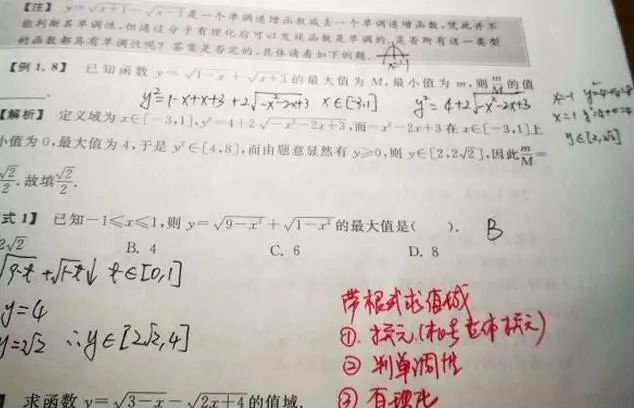 【注】 y=√x+1-√x-1是一个单调递增函数减去一个单调递增函数,凭此并不
能判断其单调性,但通过分子有理化后可以发现函数是单调的,是否所有这一类型
的函数都具有单调性呢?答案是否定的,具体请看如下例题.
【例1.8】 已知函数 y=√1-x+√x+3的最大值为 M,最小值为 m,则m/M的值
y²=1-x+x+3+2√-x²-2x+3 x∈[-3,1] y²=4+2√-x²-2x+3
x=-1
x=1
y∈[2,√8]
【解析】 定义域为x∈[-3,1],y²=4+2√-x²-2x+3,而-x²-2x+3在x∈[-3,1]上
小值为0,最大值为4,于是 y²∈[4,8],而由题意显然有 y≥0,则 y∈[2,2√2],因此m/M=
√2/2.故填√2/2.
式1】 已知-1≤x≤1,则 y=√9-x²+√1-x²的最大值是( ). B
2√2 B. 4 C. 6 D. 8
√9-t+√1-t↓ t∈[0,1]
y=4
y=2√2 ∴y∈[2√2,4]
带根式求值域
①.换元.(根号整体换元)
②判单调性
③有理化
求函数 y=√3-x-√2x+4的值域.